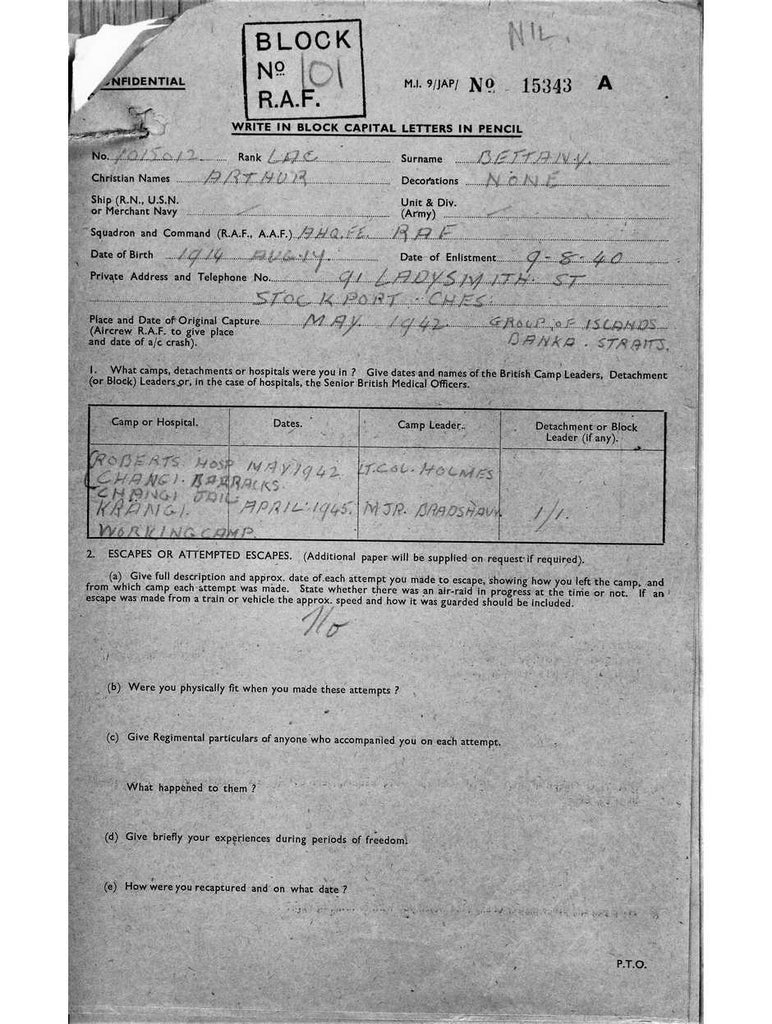 NIL.
BLOCK
No 101
R.A.F.
CONFIDENTIAL
M.I. 9/JAP/ No 15343 A
WRITE IN BLOCK CAPITAL LETTERS IN PENCIL
No. 1015012 Rank LAC Surname BETTANY.
Christian Names ARTHUR Decorations NONE
Ship (R.N., U.S.N. or Merchant Navy Unit & Div. (Army)
Squadron and Command (R.A.F., A.A.F.) AHQ.FE. RAF
Date of Birth 1914 AUG. 14. Date of Enlistment 9-8-40
Private Address and Telephone No. 91 LADYSMITH. ST
STOCKPORT. CHES.
Place and Date of Original Capture MAY. 1942. GROUP, OF ISLANDS
(Aircrew R.A.F. to give place BANKA. STRAITS.
and date of a/c crash).
1. What camps, detachments or hospitals were you in ? Give dates and names of the British Camp Leaders, Detachment
(or Block) Leaders or, in the case of hospitals, the Senior British Medical Officers.
Camp or Hospital. Dates. Camp Leader. Detachment or Block
Leader (if any).
ROBERTS HOSP MAY 1942 LT.COL. HOLMES
CHANGI. BARRACKS.
CHANGI JAIL
KRANGI. APRIL. 1945. MJR. BRADSHAW 1/1.
WORKING CAMP
2. ESCAPES OR ATTEMPTED ESCAPES. (Additional paper will be supplied on request if required).
(a) Give full description and approx. date of each attempt you made to escape, showing how you left the camp, and
from which camp each attempt was made. State whether there was an air-raid in progress at the time or not. If an
escape was made from a train or vehicle the approx. speed and how it was guarded should be included.
No
(b) Were you physically fit when you made these attempts ?
(c) Give Regimental particulars of anyone who accompanied you on each attempt.
What happened to them ?
(d) Give briefly your experiences during periods of freedom.
(e) How were you recaptured and on what date ?
P.T.O.